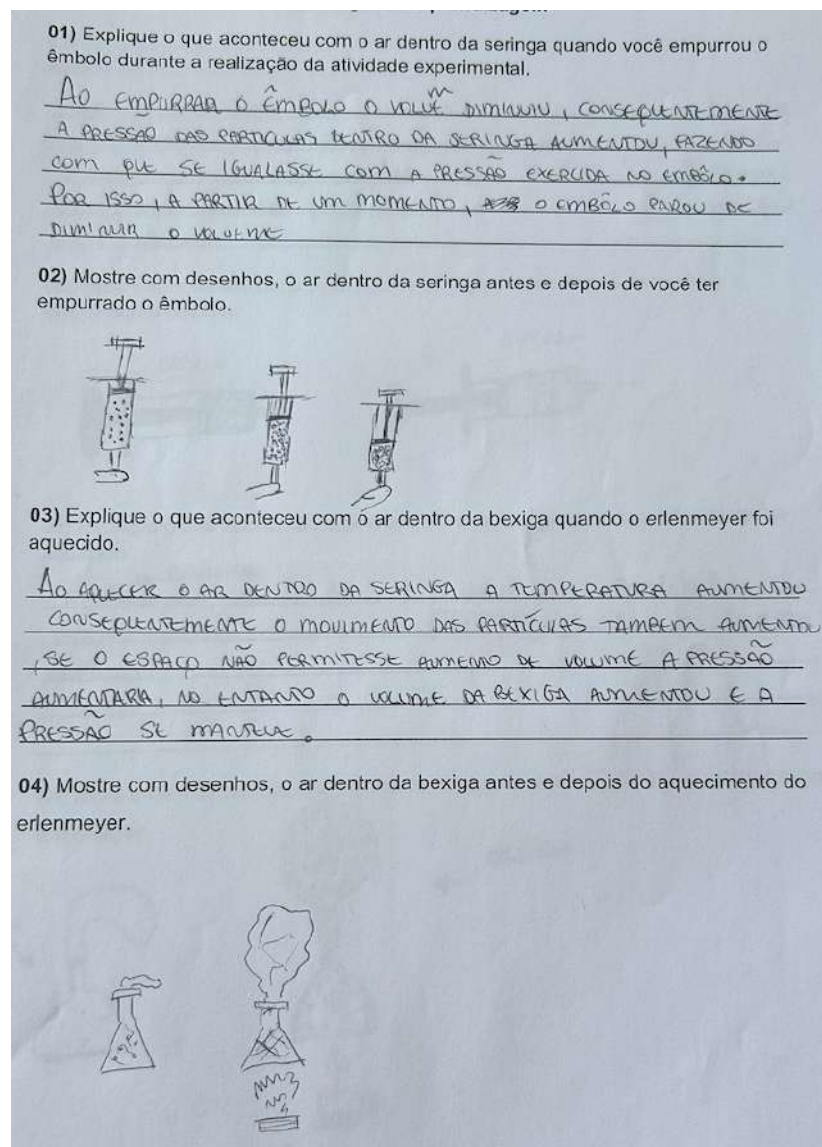 01) Explique o que aconteceu com o ar dentro da seringa quando você empurrou o
êmbolo durante a realização da atividade experimental.
AO EMPURRAR O ÊMBOLO O VOLUME DIMINUIU, CONSEQUENTEMENTE
A PRESSÃO DAS PARTICULAS DENTRO DA SERINGA AUMENTOU, FAZENDO
COM QUE SE IGUALASSE COM A PRESSÃO EXERCIDA NO EMBÔLO.
POR ISSO, A PARTIR DE UM MOMENTO, O EMBÔLO PAROU DE
DIMINUIR O VOLUME
02) Mostre com desenhos, o ar dentro da seringa antes e depois de você ter
empurrado o êmbolo.
03) Explique o que aconteceu com o ar dentro da bexiga quando o erlenmeyer foi
aquecido.
AO AQUECER O AR DENTRO DA SERINGA A TEMPERATURA AUMENTOU
CONSEQUENTEMENTE O MOVIMENTO DAS PARTÍCULAS TAMBEM AUMENTOU
, SE O ESPAÇO NÃO PERMITESSE AUMENTO DE VOLUME A PRESSÃO
AUMENTARIA, NO ENTANTO O VOLUME DA BEXIGA AUMENTOU E A
PRESSÃO SE MANTEVE.
04) Mostre com desenhos, o ar dentro da bexiga antes e depois do aquecimento do
erlenmeyer.